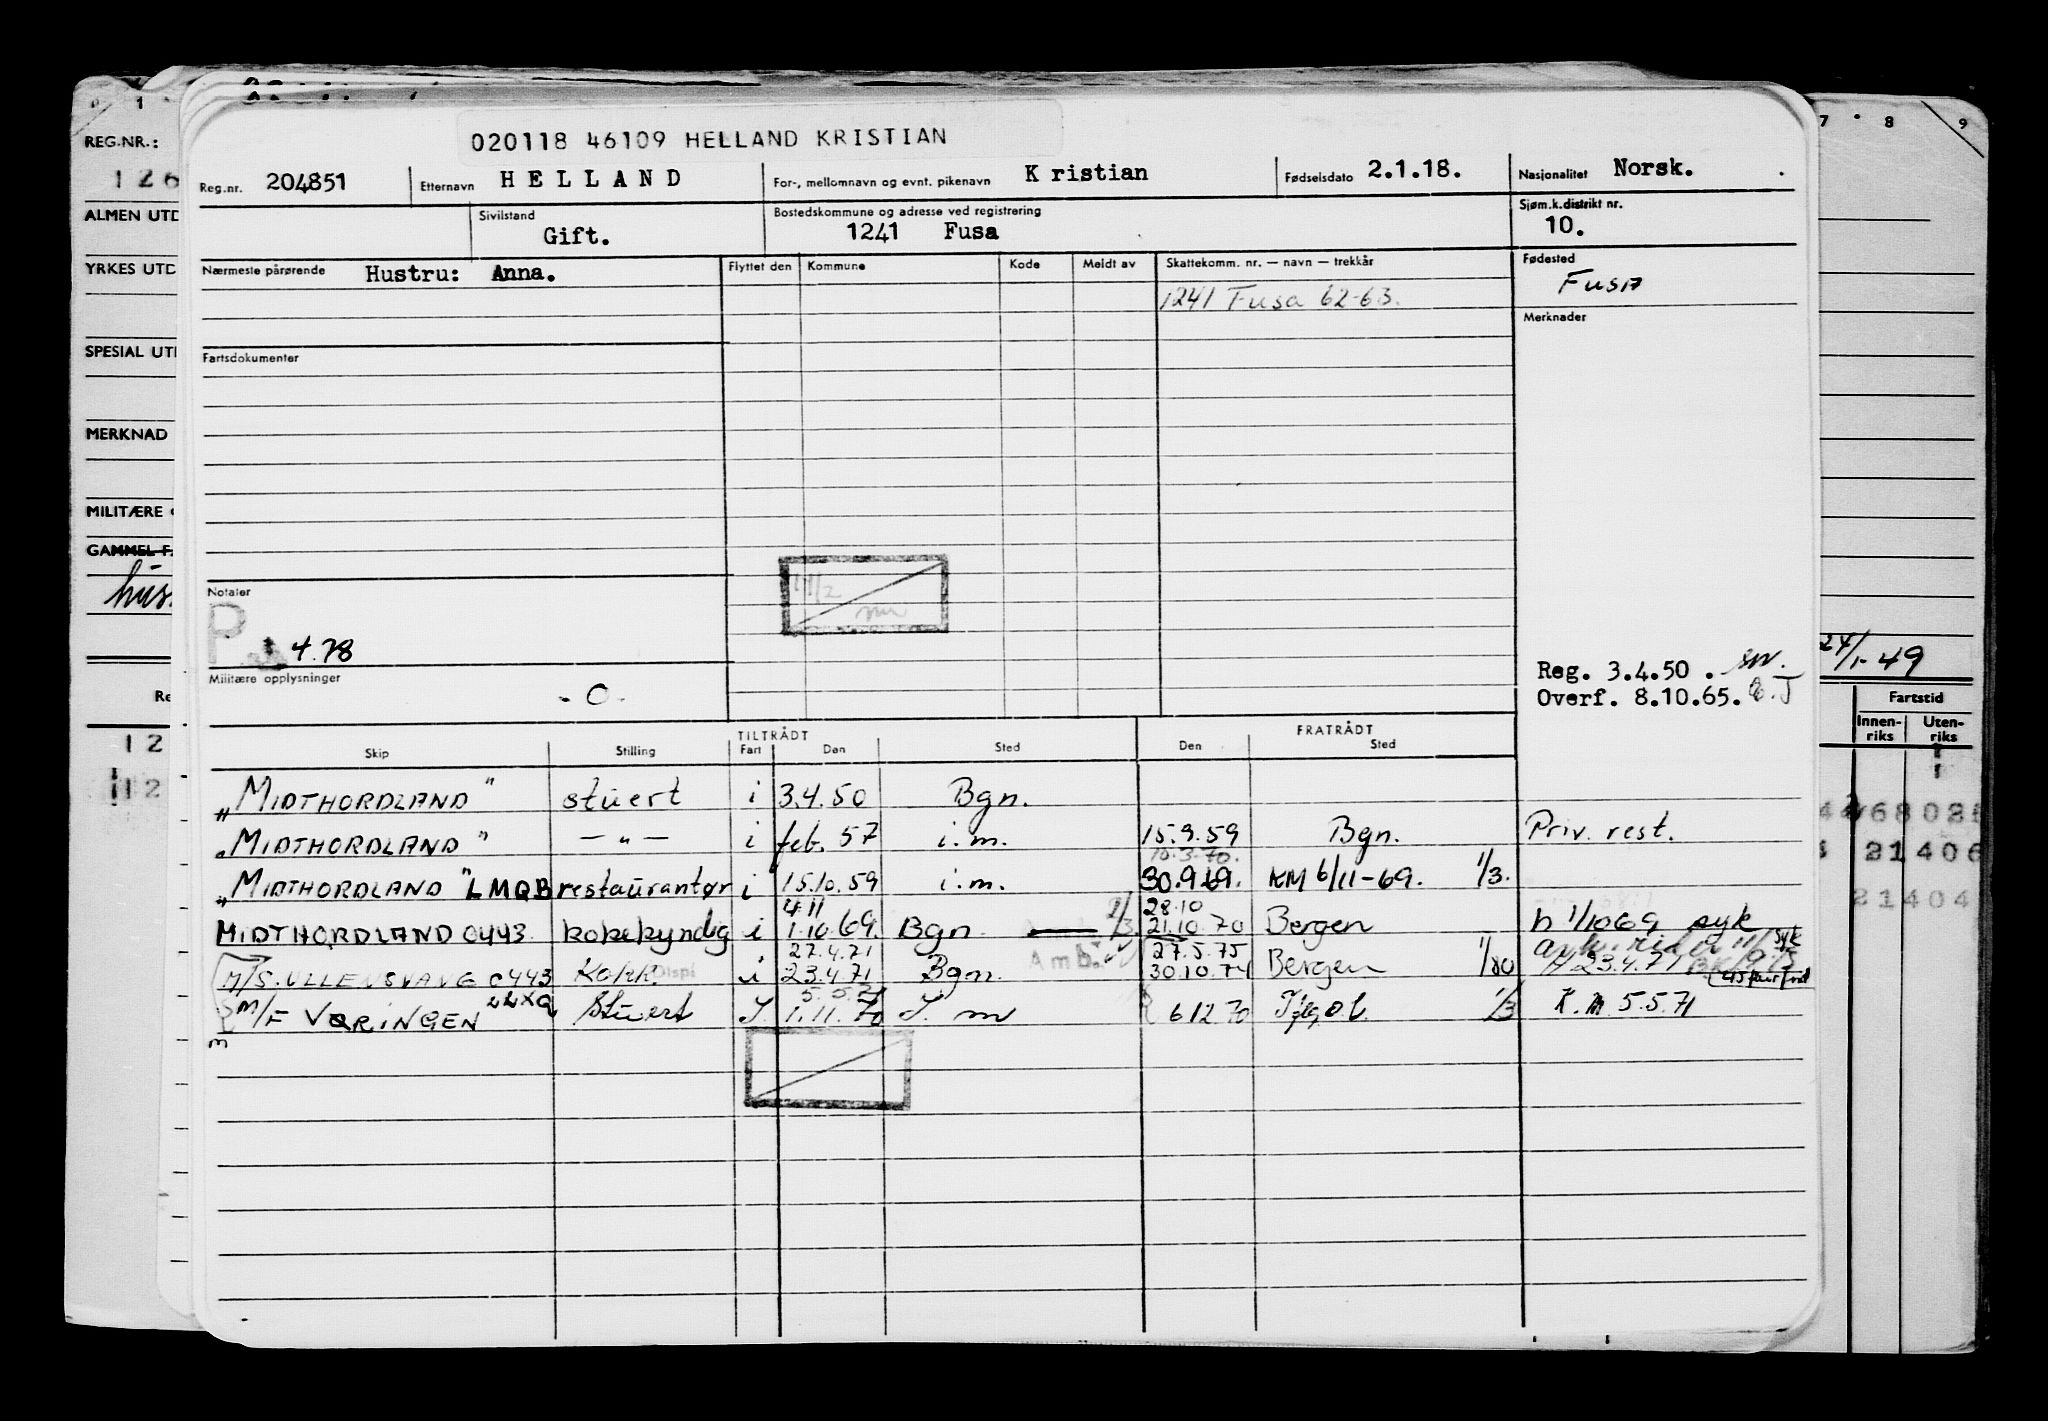 020118 46109 HELLAND KRISTIAN
Reg.nr. 204851 Etternavn HELLAND For-, mellomnavn og evnt. pikenavn Kristian Fødselsdato 2.1.18. Nasjonalitet Norsk.
Sivilstand Gift. Bostedskommune og adresse ved registrering 1241 Fusa Sjøm.k.distrikt nr. 10.
Nærmeste pårørende Hustru: Anna. Flyttet den Kommune Kode Meldt av Skattekomm. nr. — navn — trekkår Fødested Fusa
1241 Fusa 62-63.
Merknader
Fartsdokumenter
Notater
P
4.78
Militære opplysninger
- 0 -
Reg. 3.4.50.
Overf. 8.10.65.
TILTRÅDT FRATRÅDT
Skip Stilling Fart Den Sted Den Sted
"MIDTHORDLAND" stuert i 3.4.50 Bgn.
"MIDTHORDLAND" — " — i feb. 57 i.m. 15.9.59 Bgn. Priv. rest.
10.3.70.
"MIDTHORDLAND" LMQB restaurantør i 15.10.59 i.m. 30.9.69. KM 6/11-69. 1/3.
4.11 28.10
MIDTHORDLAND 0443 kokekyndig i 1.10.69. Bgn. 2/3 21.10.70 Bergen h 1/10 69 syk
27.4.71 27.5.75
M/S. ULLENSVANG 0443 Kokk Disp i 23.4.71 Bgn. Amb. 30.10.74 Bergen 1/80 23.4.71
5.5.71
M/F VØRINGEN LLXQ Stuert I 1.11.70 I m 6 12 70 1/3 K.M 5.5.71
3
REG.NR.:
126
ALMEN UTD
YRKES UTD
SPESIAL UT
MERKNAD
MILITÆRE
GAMMEL F
hus
Re
12
12
7 8 9
24/1-49
Fartstid
Innen-riks Uten-riks
21406
21404